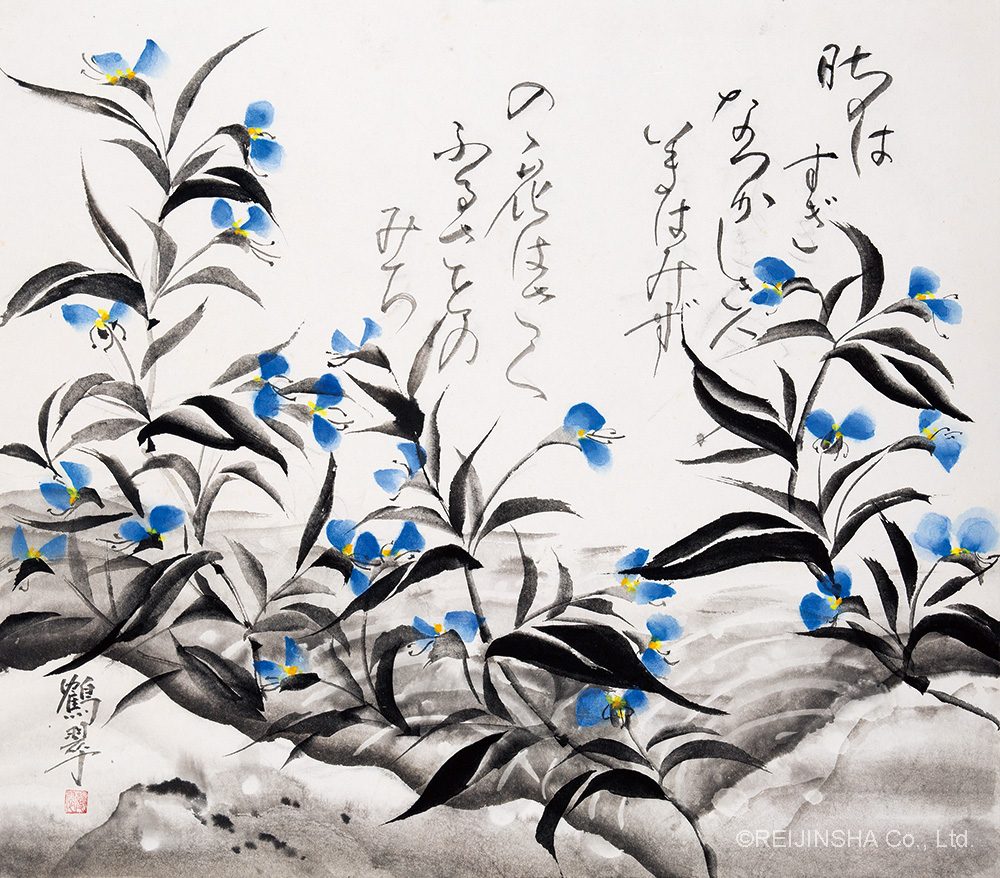 時は
すぎ
なつかしき人
いまはみず
のゝ花はさく
ふるさとの
みち
鶴翠
©REIJINSHA Co., Ltd.